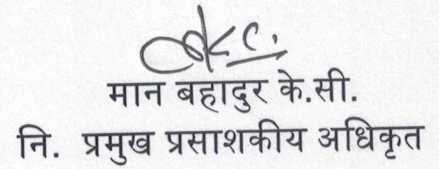 मान बहादुर के.सी.
नि. प्रमुख प्रसाशकीय अधिकृत